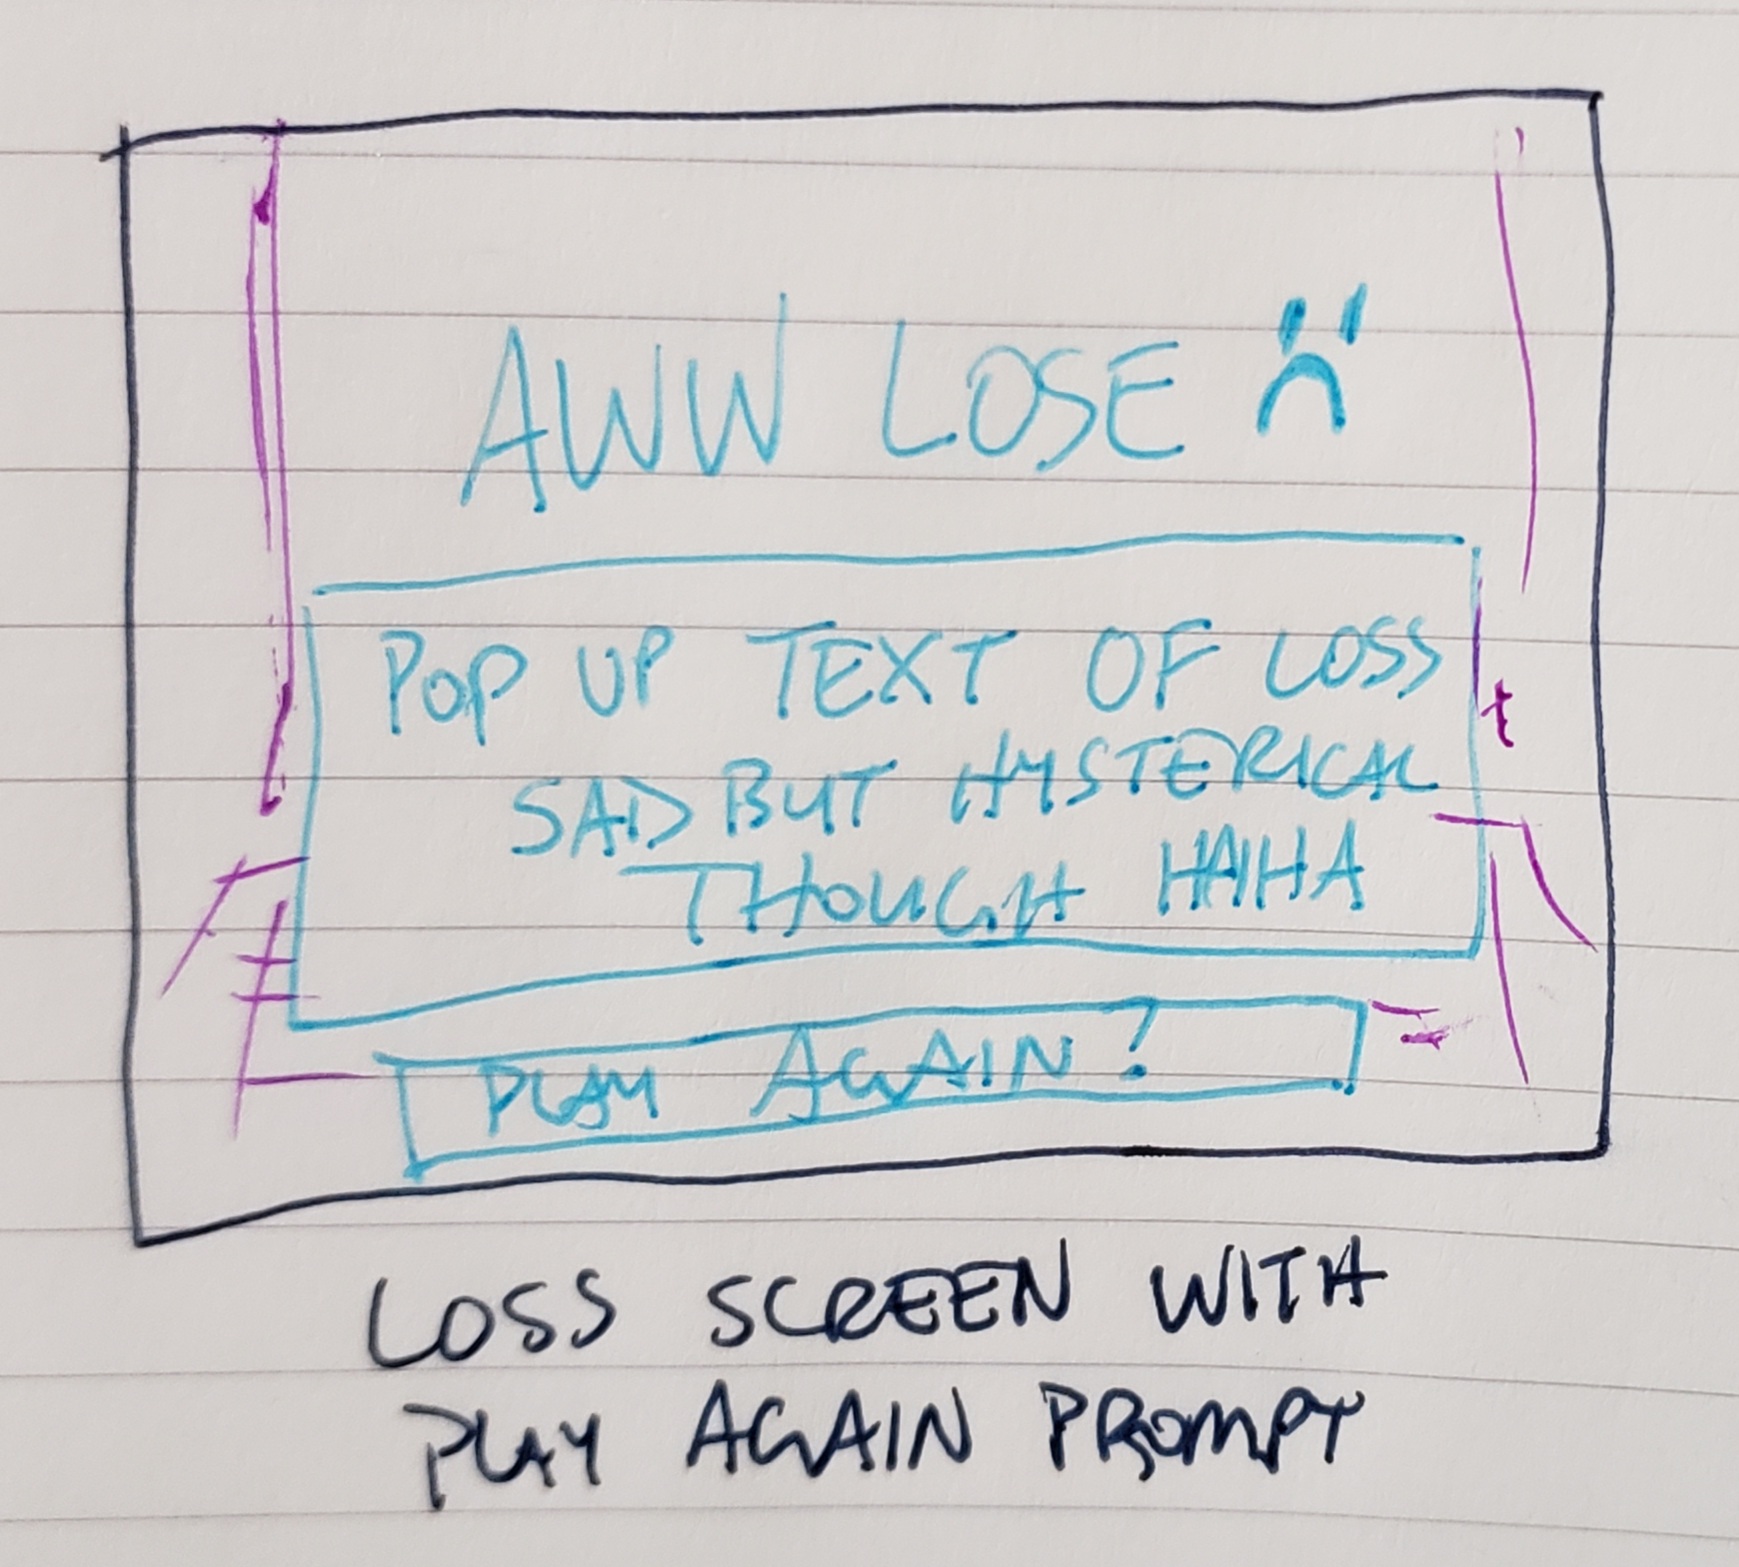 AWW LOSE
POP UP TEXT OF LOSS
SAD BUT HYSTERICAL
THOUGH HAHA
PLAY AGAIN?
LOSS SCREEN WITH
PLAY AGAIN PROMPT